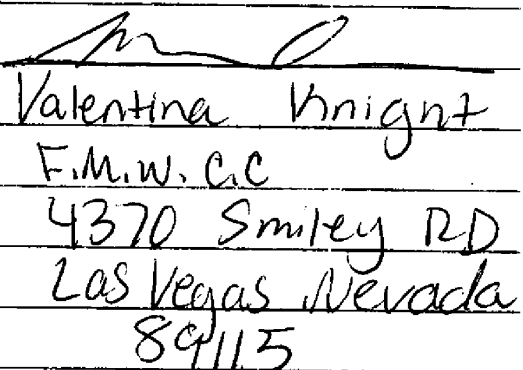 Valentina Knight
F.M.W.C.C
4370 Smiley RD
Las Vegas Nevada
89115